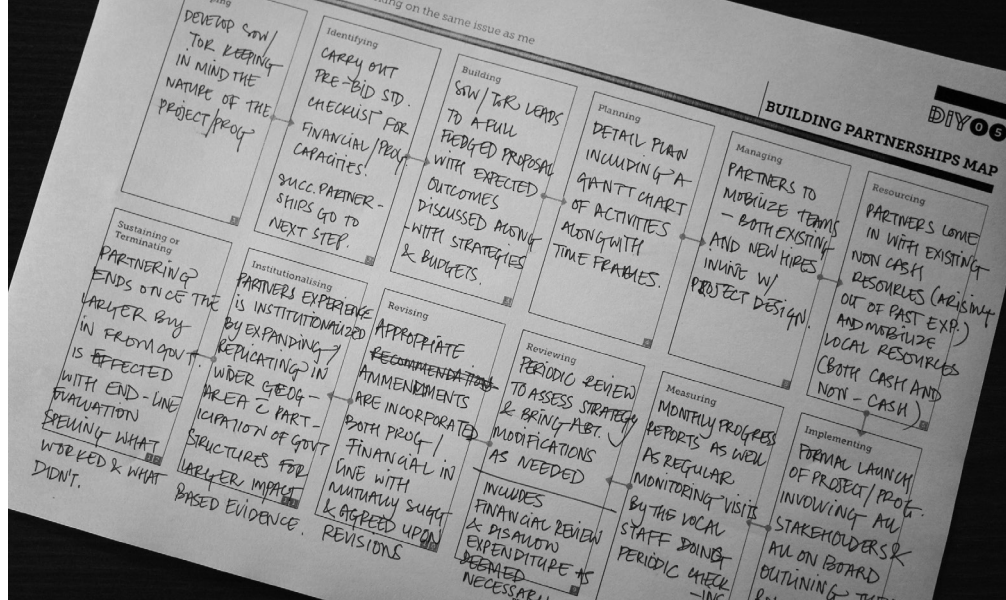 king on the same issue as me
DIY 05
BUILDING PARTNERSHIPS MAP
DEVELOP SOW/
TOR KEEPING
IN MIND THE
NATURE OF THE
PROJECT/PROG
Identifying
CARRY OUT
PRE-BID STD.
CHECKLIST FOR
FINANCIAL/PROG
CAPACITIES!
SUCC. PARTNER-
SHIPS GO TO
NEXT STEP.
Building
SOW/TOR LEADS
TO A FULL
FLEDGED PROPOSAL
WITH EXPECTED
OUTCOMES
DISCUSSED ALONG
-WITH STRATEGIES
& BUDGETS.
Planning
DETAIL PLAN
INCLUDING A
GANTT CHART
OF ACTIVITIES
ALONGWITH
TIME FRAMES.
Managing
PARTNERS TO
MOBILIZE TEAMS
- BOTH EXISTING
AND NEW HIRES
INLINE W/
PROJECT DESIGN.
Resourcing
PARTNERS COME
IN WITH EXISTING
NON CASH
RESOURCES (ARISING
OUT OF PAST EXP.)
AND MOBILIZE
LOCAL RESOURCES
(BOTH CASH AND
NON-CASH)
Sustaining or
Terminating
PARTNERING
ENDS ONCE THE
LARGER BUY
IN FROM GOVT.
IS EFFECTED
WITH END-LINE
EVALUATION
SPELLING WHAT
WORKED & WHAT
DIDN'T.
Institutionalising
PARTNERS EXPERIENCE
IS INSTITUTIONALIZED
BY EXPANDING/
REPLICATING IN
WIDER GEOG-
AREA C PART-
ICIPATION OF GOVT
STRUCTURES FOR
LARGER IMPACT
BASED EVIDENCE.
Revising
APPROPRIATE
RECOMMENDATIONS
AMMENDMENTS
ARE INCORPORATED
BOTH PROG/
FINANCIAL IN
LINE WITH
MUTUALLY SUGG
& AGREED UPON
REVISIONS
Reviewing
PERIODIC REVIEW
TO ASSESS STRATEGY
& BRING ABT.
MODIFICATIONS
AS NEEDED
INCLUDES
FINANCIAL REVIEW
& DISALLOW
EXPENDITURE AS
DEEMED
NECESSARY
Measuring
MONTHLY PROGRESS
REPORTS AS WELL
AS REGULAR
MONITORING VISITS
BY THE LOCAL
STAFF DOING
PERIODIC CHECK
-ING
Implementing
FORMAL LAUNCH
OF PROJECT/PROG.
INVOLVING ALL
STAKEHOLDERS &
ALL ON BOARD
OUTLINING THE